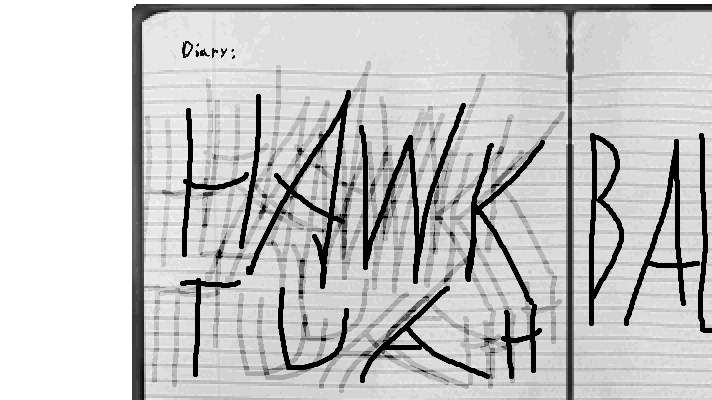 Diary:
HAWK
TUAH